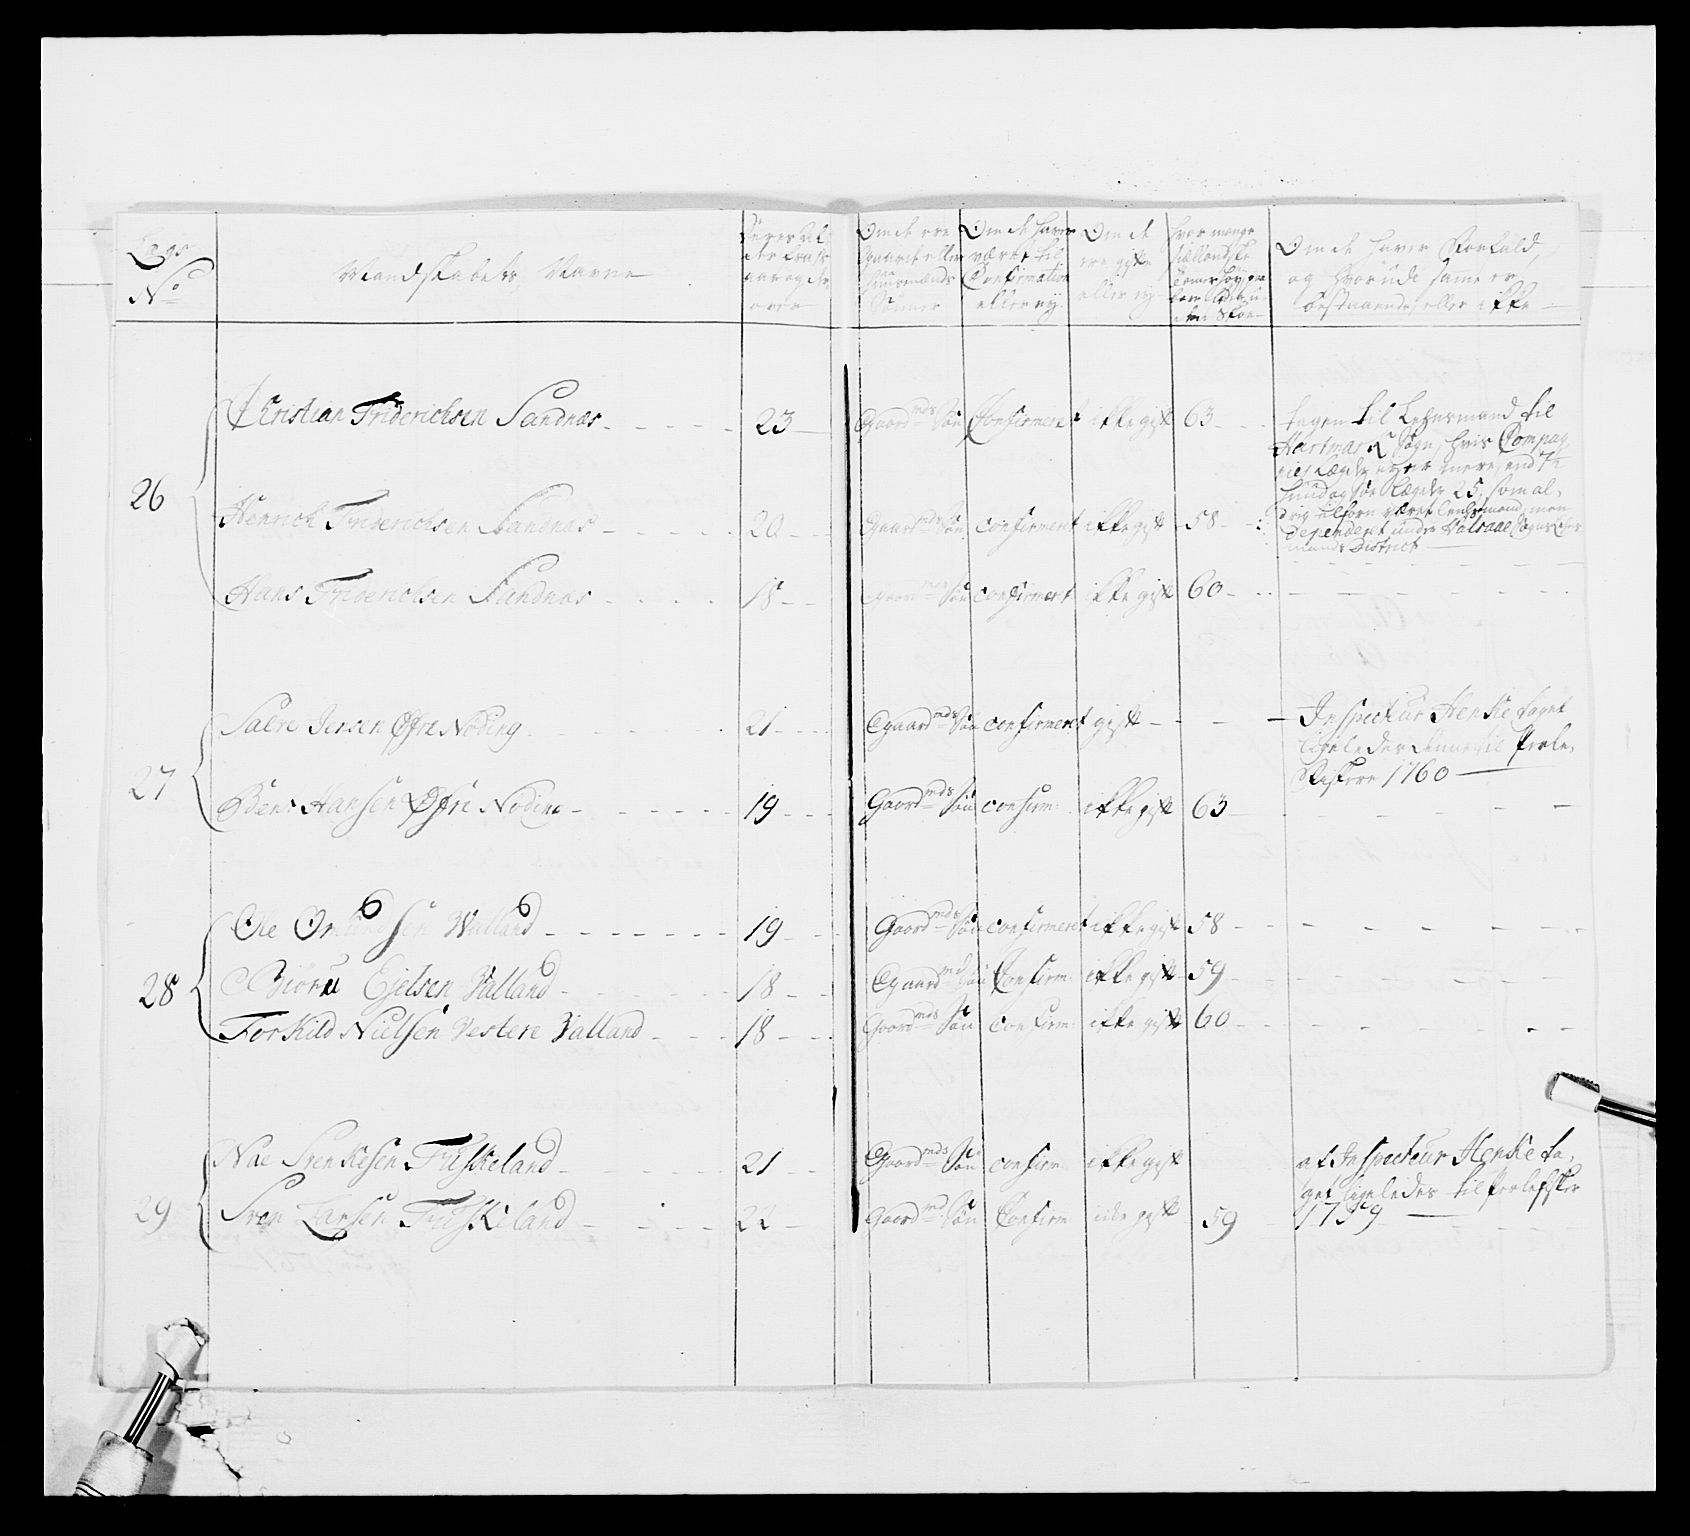 Lægs
No
Mandskabets Navne
Deres Al-
der
Om de ere
Gaards eller
Huusmænds
Sønner
Om de haver
været til
Confirmation
eller ey
Om de
ere gifte
eller ey
Hvor mange
siællandske
Om de haver Forfald,
og hvorudi same er
bestaaende, eller ikke
26
Christian Friderichsen Sandnæs 23 Gaardmds Søn Confirmeret ikke gift 63
tagen til Lehnsmand til
Hartmark Sogn, hvis Compag
Henrich Friderichsen Sandnæs 20 Gaardmds Søn confirmert ikke gift 58
dependeret under Halsaae Sogns
mands District
Hans Friderichsen Sandnæs 18 Gaardmds Søn confirmert ikke gift 60
27
Salve Jensen Øfre Nøding 21 Gaardmds Søn confirmeret gift
Inspecteur Henkie taget
ligeledes til
1760
Hansen Øfre Nøding 19 Gaardmds Søn confirm ikke gift 63
28
Ole Omundsen Walland 19 Gaardmds Søn confirmeret ikke gift 58
Biørn Ejelsen Valland 18 Gaardmd Søn Confirm ikke gift 59
Torkild Nielsen Vestere Valland 18 Gaardmds Søn confirm ikke gift 60
29
Nae Svenkesen Fuskeland 21 Gaardmds Søn confirm ikke gift
af Inspecteur Henke ta-
get ligeledes til
1759
Sven Larsen Fuskeland 22 Gaardmd Søn Confirm ikke gift 59